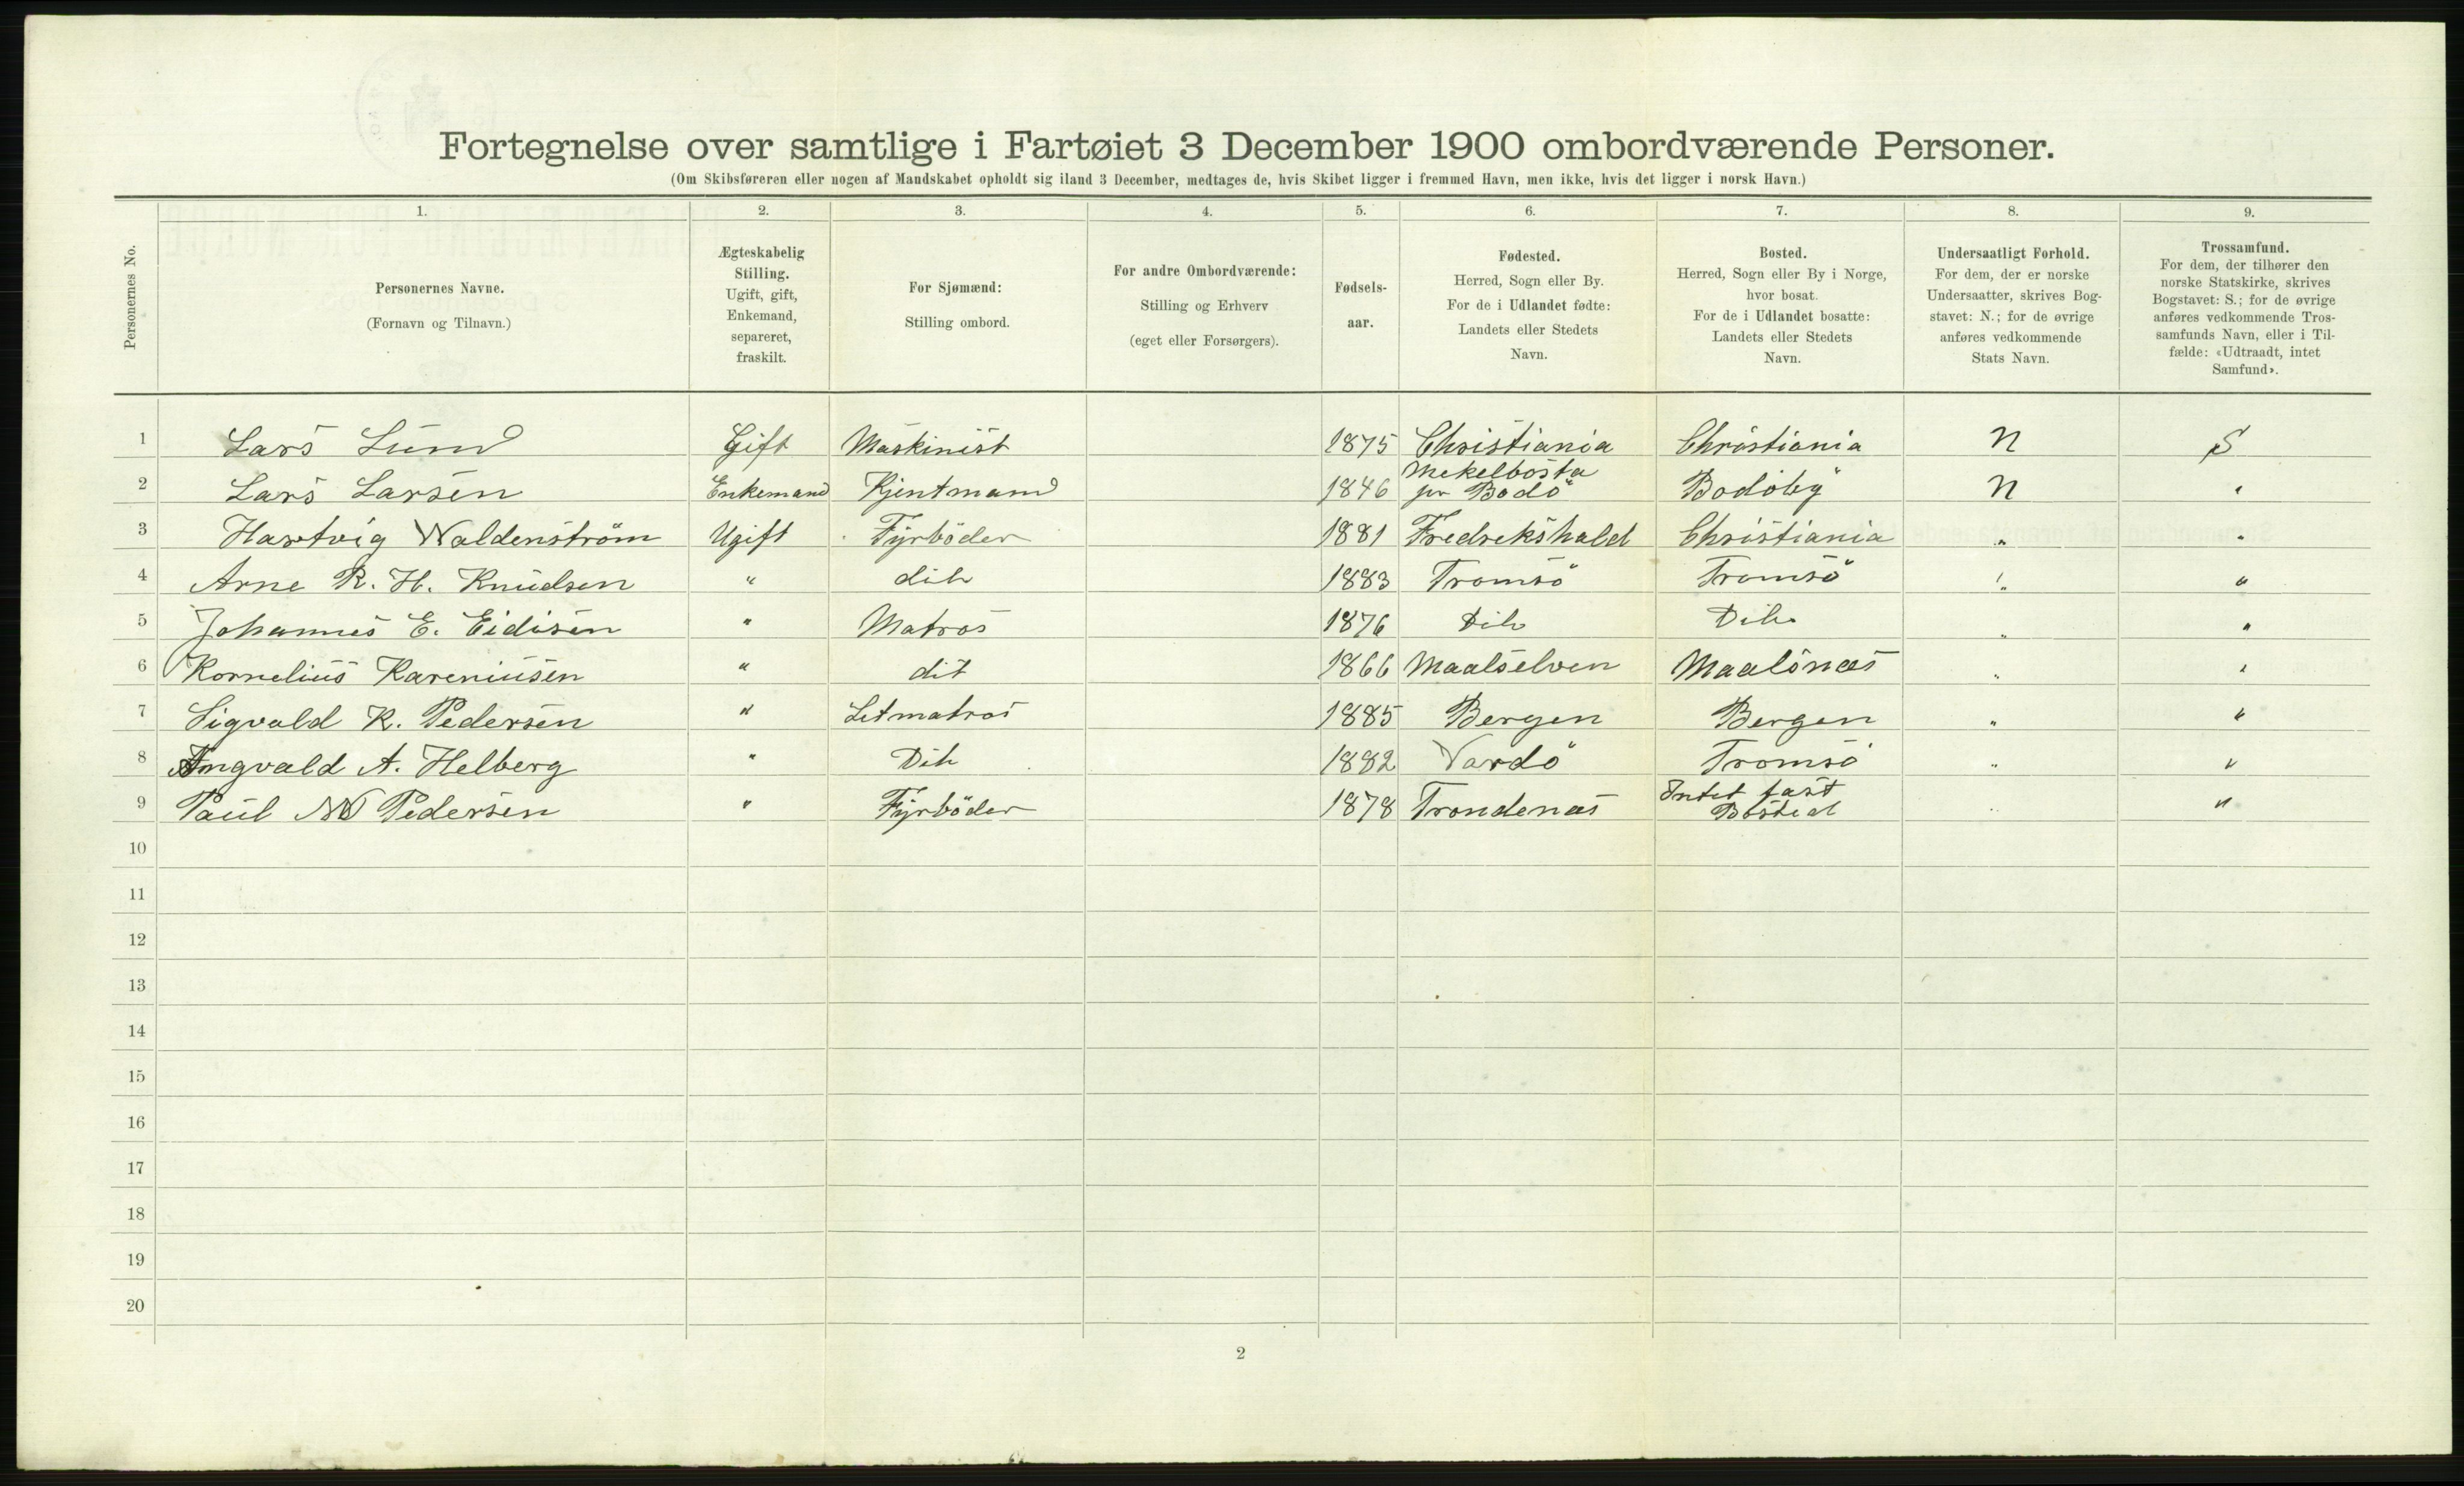 Fortegnelse over samtlige i Fartøiet 3 December 1900 ombordværende Personer.
(Om Skibsføreren eller nogen af Mandskabet opholdt sig iland 3 December, medtages de, hvis Skibet ligger i fremmed Havn, men ikke, hvis det ligger i norsk Havn.)
1. 2. 3. 4. 5. 6. 7. 8. 9.
Personernes No.
Personernes Navne.
(Fornavn og Tilnavn.)
Ægteskabelig
Stilling.
Ugift, gift,
Enkemand,
separeret,
fraskilt.
For Sjømænd:
Stilling ombord.
For andre Ombordværende:
Stilling og Erhverv
(eget eller Forsørgers).
Fødsels-
aar.
Fødested.
Herred, Sogn eller By.
For de i Udlandet fødte:
Landets eller Stedets
Navn.
Bosted.
Herred, Sogn eller By i Norge,
hvor bosat.
For de i Udlandet bosatte:
Landets eller Stedets
Navn.
Undersaatligt Forhold.
For dem, der er norske
Undersaatter, skrives Bog-
stavet: N.; for de øvrige
anføres vedkommende
Stats Navn.
Trossamfund.
For dem, der tilhører den
norske Statskirke, skrives
Bogstavet: S.; for de øvrige
anføres vedkommende Tros-
samfunds Navn, eller i Til-
fælde: «Udtraadt, intet
Samfund».
1 Lars Lund Gift Maskinist 1875 Christiania Christiania N S
2 Lars Larsen Enkemand Kjentmand 1846 Mekelbosta pr Bodö Bodöby N "
3 Hartvig Waldenström Ugift Fyrböder 1881 Fredrekshald Christiania " "
4 Arne R. H. Knudsen " dito 1883 Tromsö Tromsö " "
5 Johannes E. Eidisen " Matros 1876 Dito Dito " "
6 Kornelius Kareniusen " dit 1866 Maalselven Maalsnæs " "
7 Sigvald K. Pedersen " Letmatros 1885 Bergen Bergen " "
8 A. Helberg " Dito 1882 Vardö Tromsö " "
9 Paul Pedersen " Fyrböder 1878 Trondenæs Intet fast Bosted " "
10
11
12
13
14
15
16
17
18
19
20
2